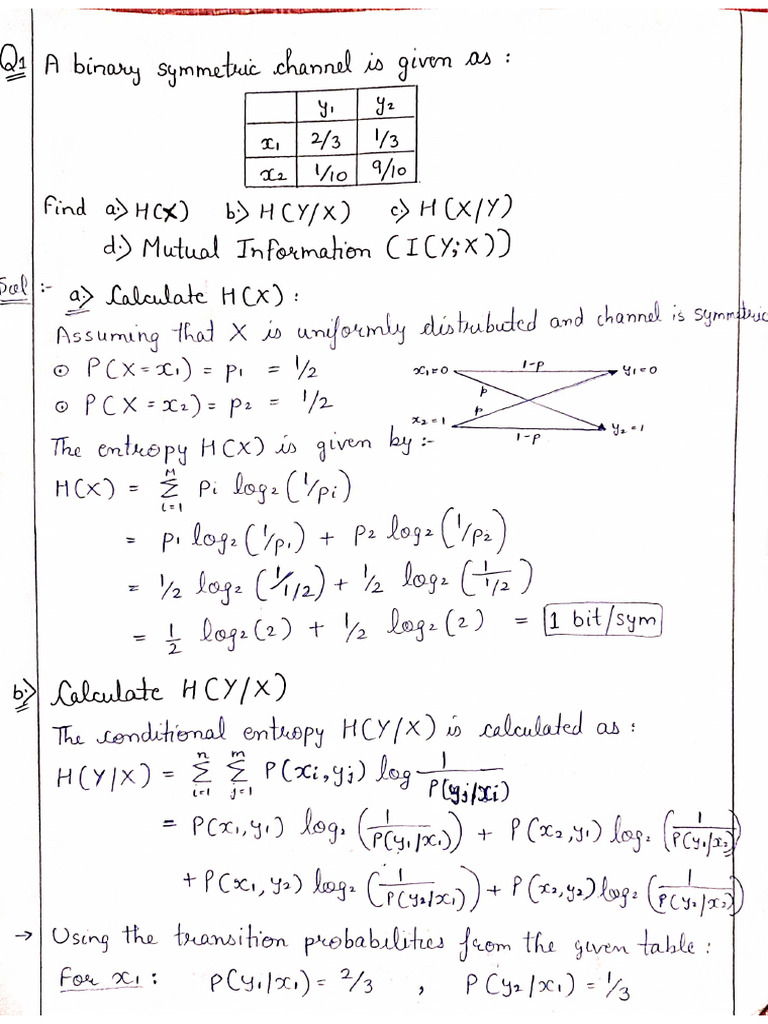 Q1 A binary symmetric channel is given as :
y1 y2
x1 2/3 1/3
x2 1/10 9/10
Find a.) H(X) b.) H(Y/X) c.) H(X/Y)
d.) Mutual Information (I(Y;X))
Sol :- a.) Calculate H(X) :
Assuming that X is uniformly distributed and channel is symmetric
⊙ P(X=x1) = p1 = 1/2
⊙ P(X=x2) = p2 = 1/2
x1=0 1-p y1=0
p
p
x2=1 1-p y2=1
The entropy H(X) is given by :-
H(X) = M Σ i=1 Pi log2 (1/pi)
= p1 log2 (1/p1) + p2 log2 (1/p2)
= 1/2 log2 (1/1/2) + 1/2 log2 (1/1/2)
= 1/2 log2(2) + 1/2 log2(2) = 1 bit/sym
b.) Calculate H(Y/X)
The conditional entropy H(Y/X) is calculated as :
H(Y/X) = n Σ i=1 m Σ j=1 P(xi,yj) log 1/P(yj/xi)
= P(x1,y1) log2 (1/P(y1/x1)) + P(x2,y1) log2 (1/P(y1/x2))
+ P(x1,y2) log2 (1/P(y2/x1)) + P(x2,y2) log2 (1/P(y2/x2))
→ Using the transition probabilities from the given table :
For x1 : P(y1/x1) = 2/3 , P(y2/x1) = 1/3